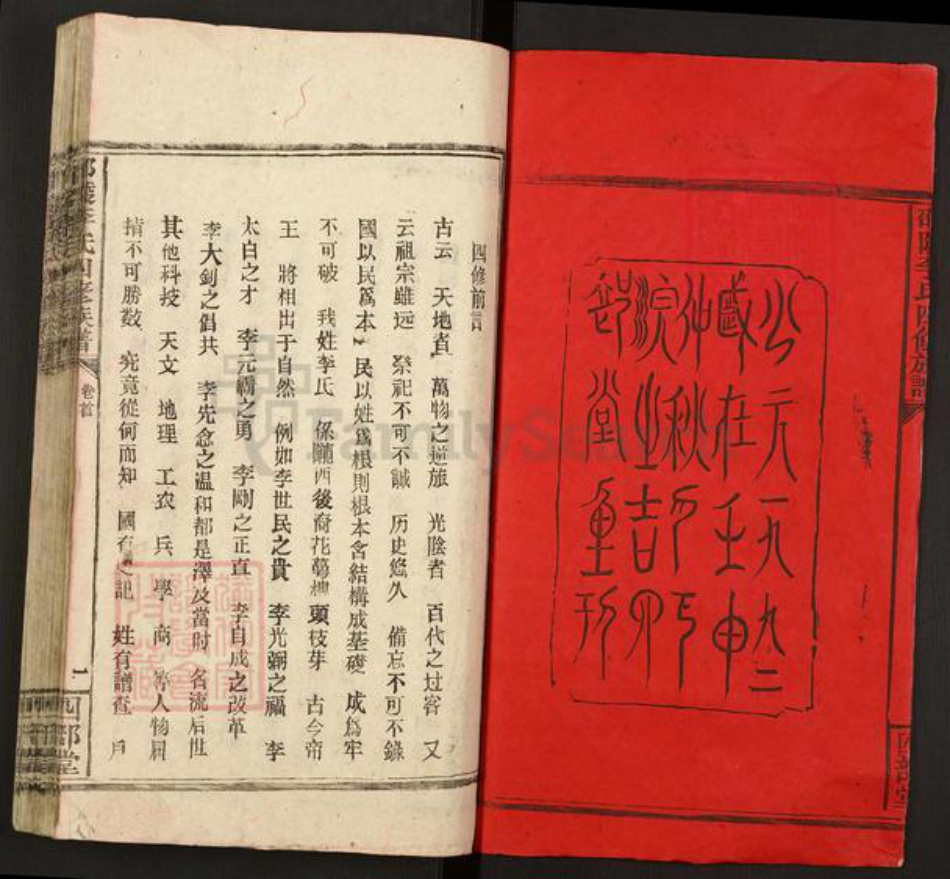 公元一九九二
歲在壬申
仲秋月
浣之吉
堂重刊
邵陵李氏四修族譜
四修前言
古云 天地者 萬物之逆旅 光陰者 百代之过客 又
云祖宗雖远 祭祀不可不誠 历史悠久 備忘不可不錄
國以民爲本、民以姓爲根則根本含結構成基礎 成爲牢
不可破 我姓李氏 係隴西後裔花萼 頭枝芽 古今帝
王 將相出于自然 例如李世民之貴 李光弼之福 李
太白之才 李元霸之勇 李剛之正直 李自成之改革
李大釗之倡共 李先念之温和都是澤及當时 名流后世
其他科技 天文 地理 工农 兵 學 商 等人物屈
指不可勝数 究竟從何而知 國有史記 姓有譜查 戶
邵陵李氏四修族譜
卷首
一
FamilySearch